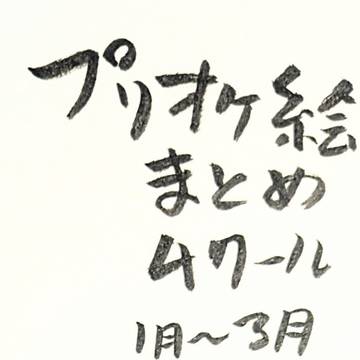 プリオケ絵
まとめ
4クール
1月〜3月